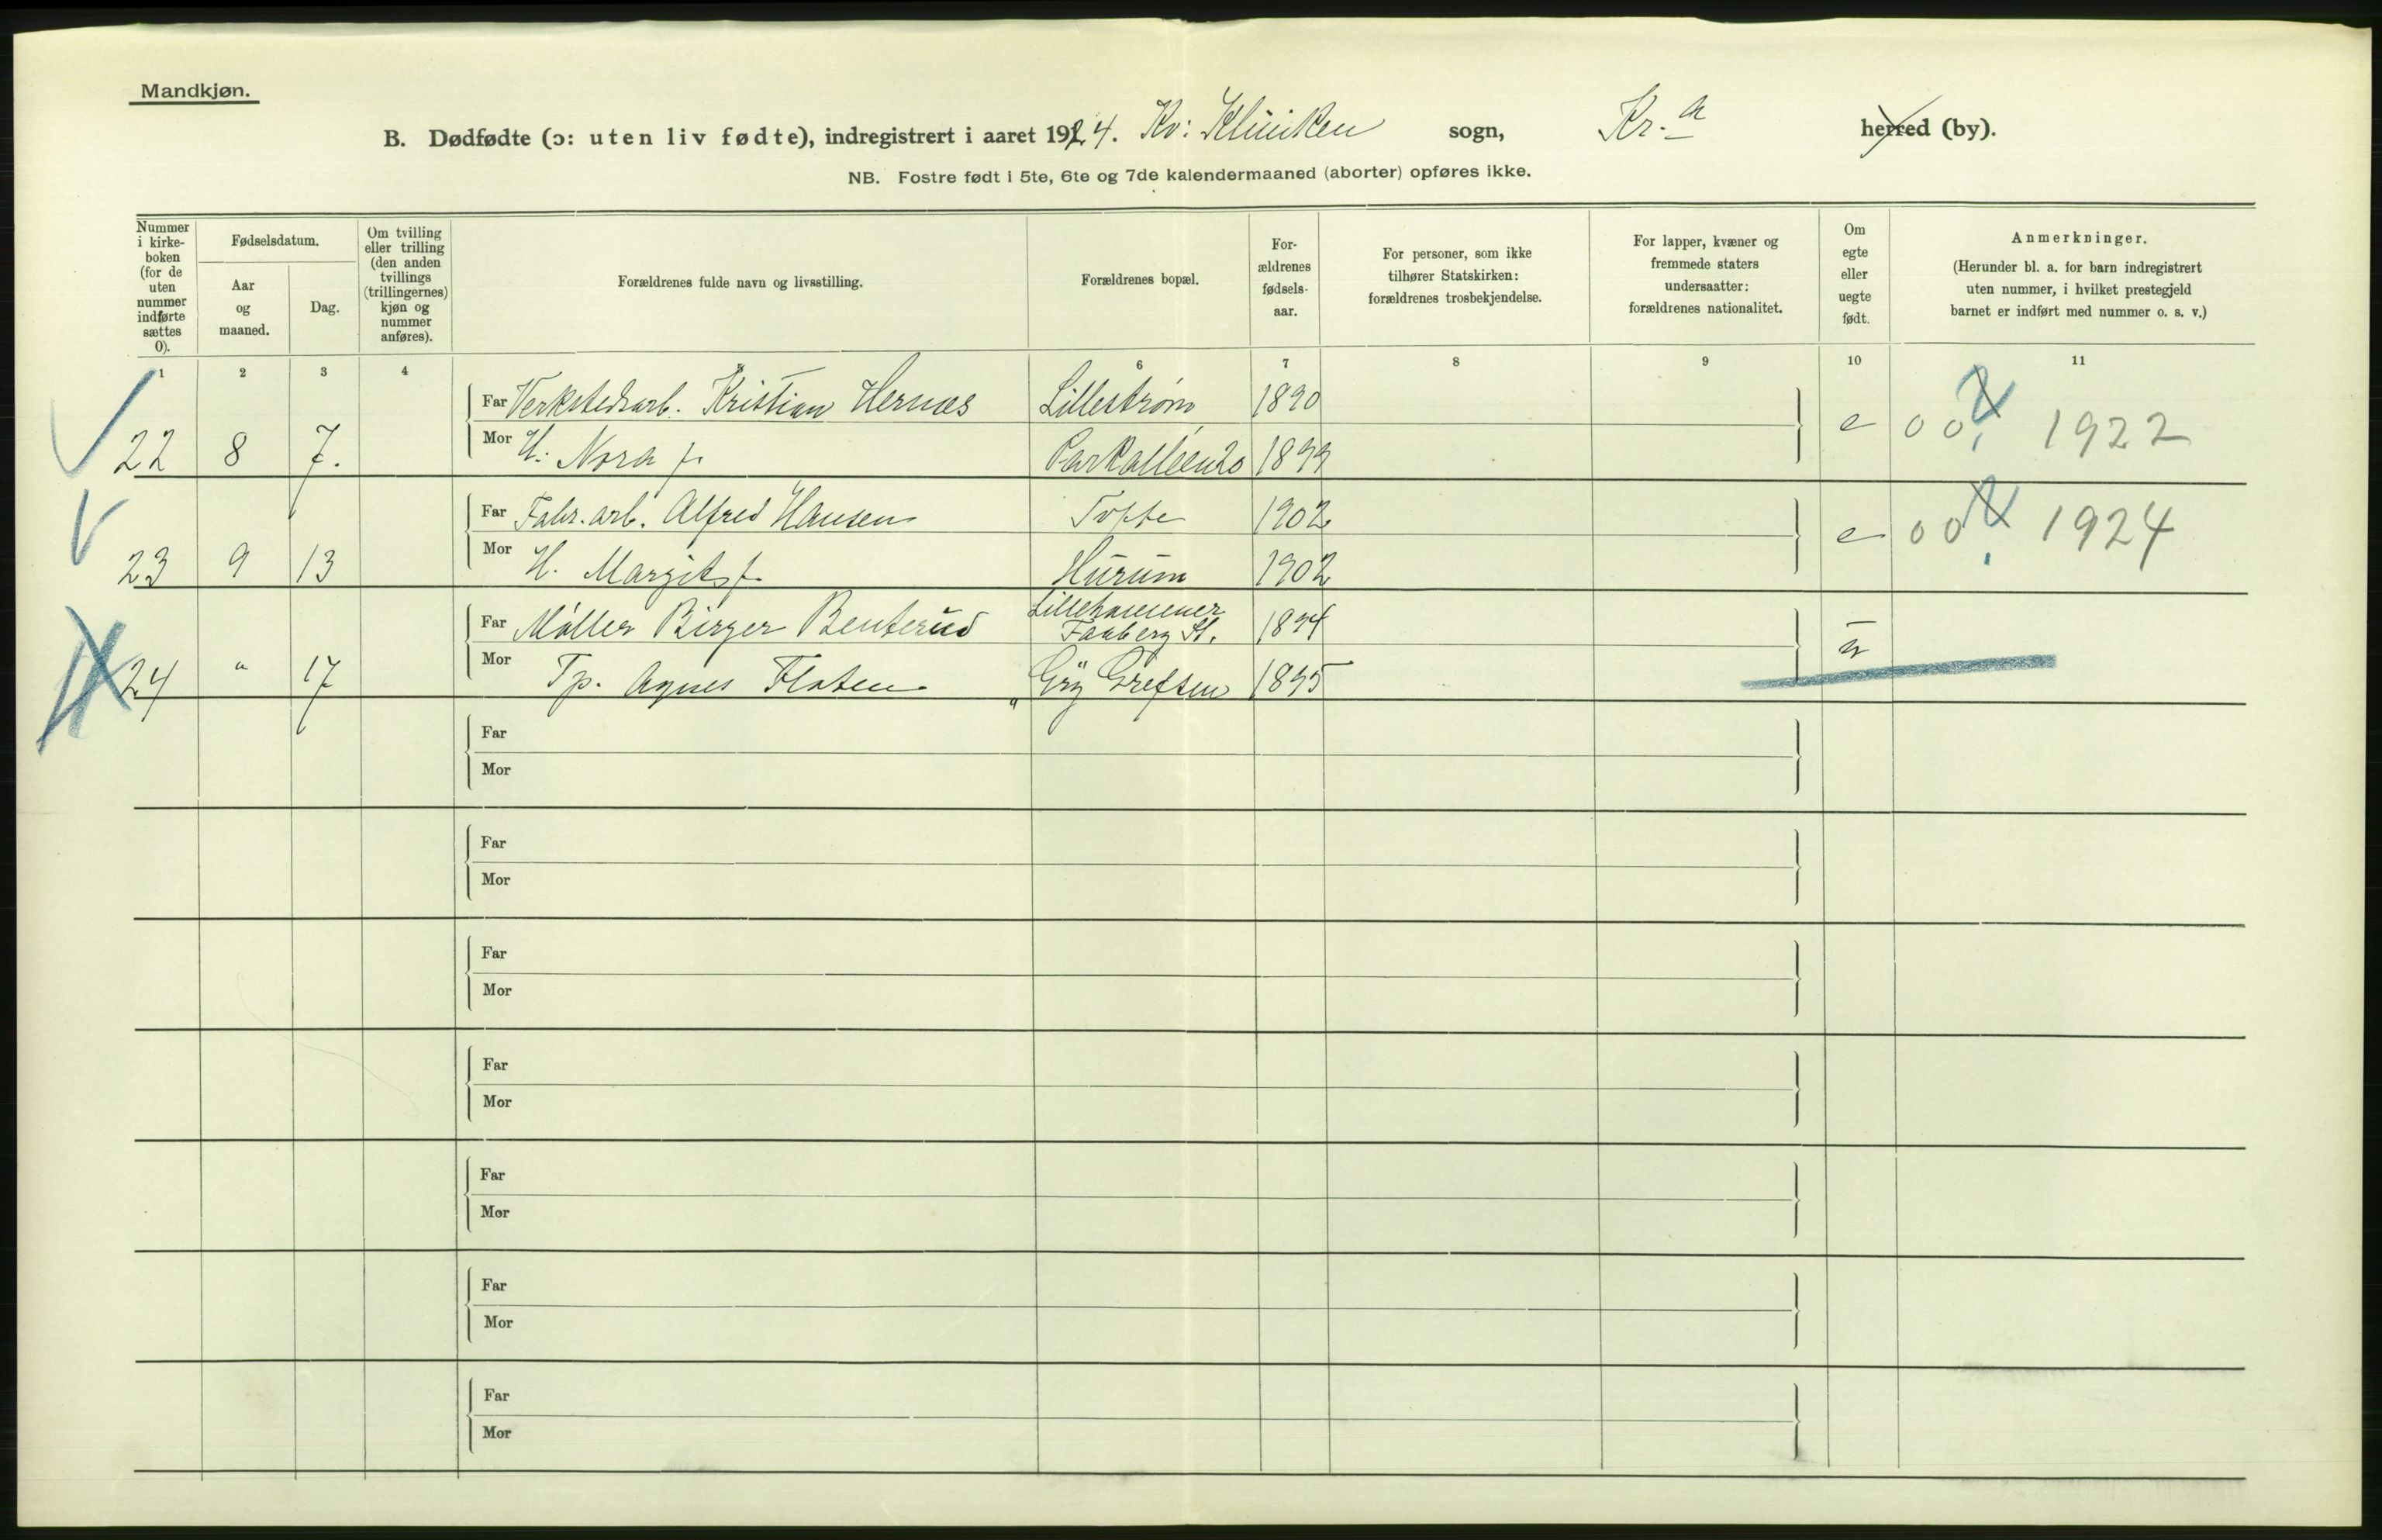 Mandkjøn.
B. Dødfødte (ɔ: uten liv fødte), indregistrert i aaret 1924. Kv: Kliniken sogn, Kr.a herred (by).
NB. Fostre født i 5te, 6te og 7de kalendermaaned (aborter) opføres ikke.
Nummer i kirke-boken (for de uten nummer indførte sættes 0).
Fødselsdatum.
Aar og maaned.
Dag.
Om tvilling eller trilling (den anden tvillings (trillingernes) kjøn og nummer anføres).
Forældrenes fulde navn og livsstilling.
Forældrenes bopæl.
For-ældrenes fødsels-aar.
For personer, som ikke tilhører Statskirken: forældrenes trosbekjendelse.
For lapper, kvæner og fremmede staters undersaatter: forældrenes nationalitet.
Om egte eller uegte født.
Anmerkninger.
(Herunder bl. a. for barn indregistrert uten nummer, i hvilket prestegjeld barnet er indført med nummer o. s. v.)
1 2 3 4 6 7 8 9 10 11
Far Verkstedsarb. Kristian Hernæs Lillestrøm 1890
22 8 7. Mor H. Nora f. Parkalléen 20 1899 e 00 1922
Far Fabr. arb. Alfred Hansen Tofte 1902
23 9 13 Mor H. Margit f. Hurum 1902 e 00 1924
Far Møller Birger Benterud Lillehammer Faaberg St. 1894
24 " 17 Mor Tp. Agnes Floten Grefsen 1895 u
Far
Mor
Far
Mor
Far
Mor
Far
Mor
Far
Mor
Far
Mor
Far
Mor